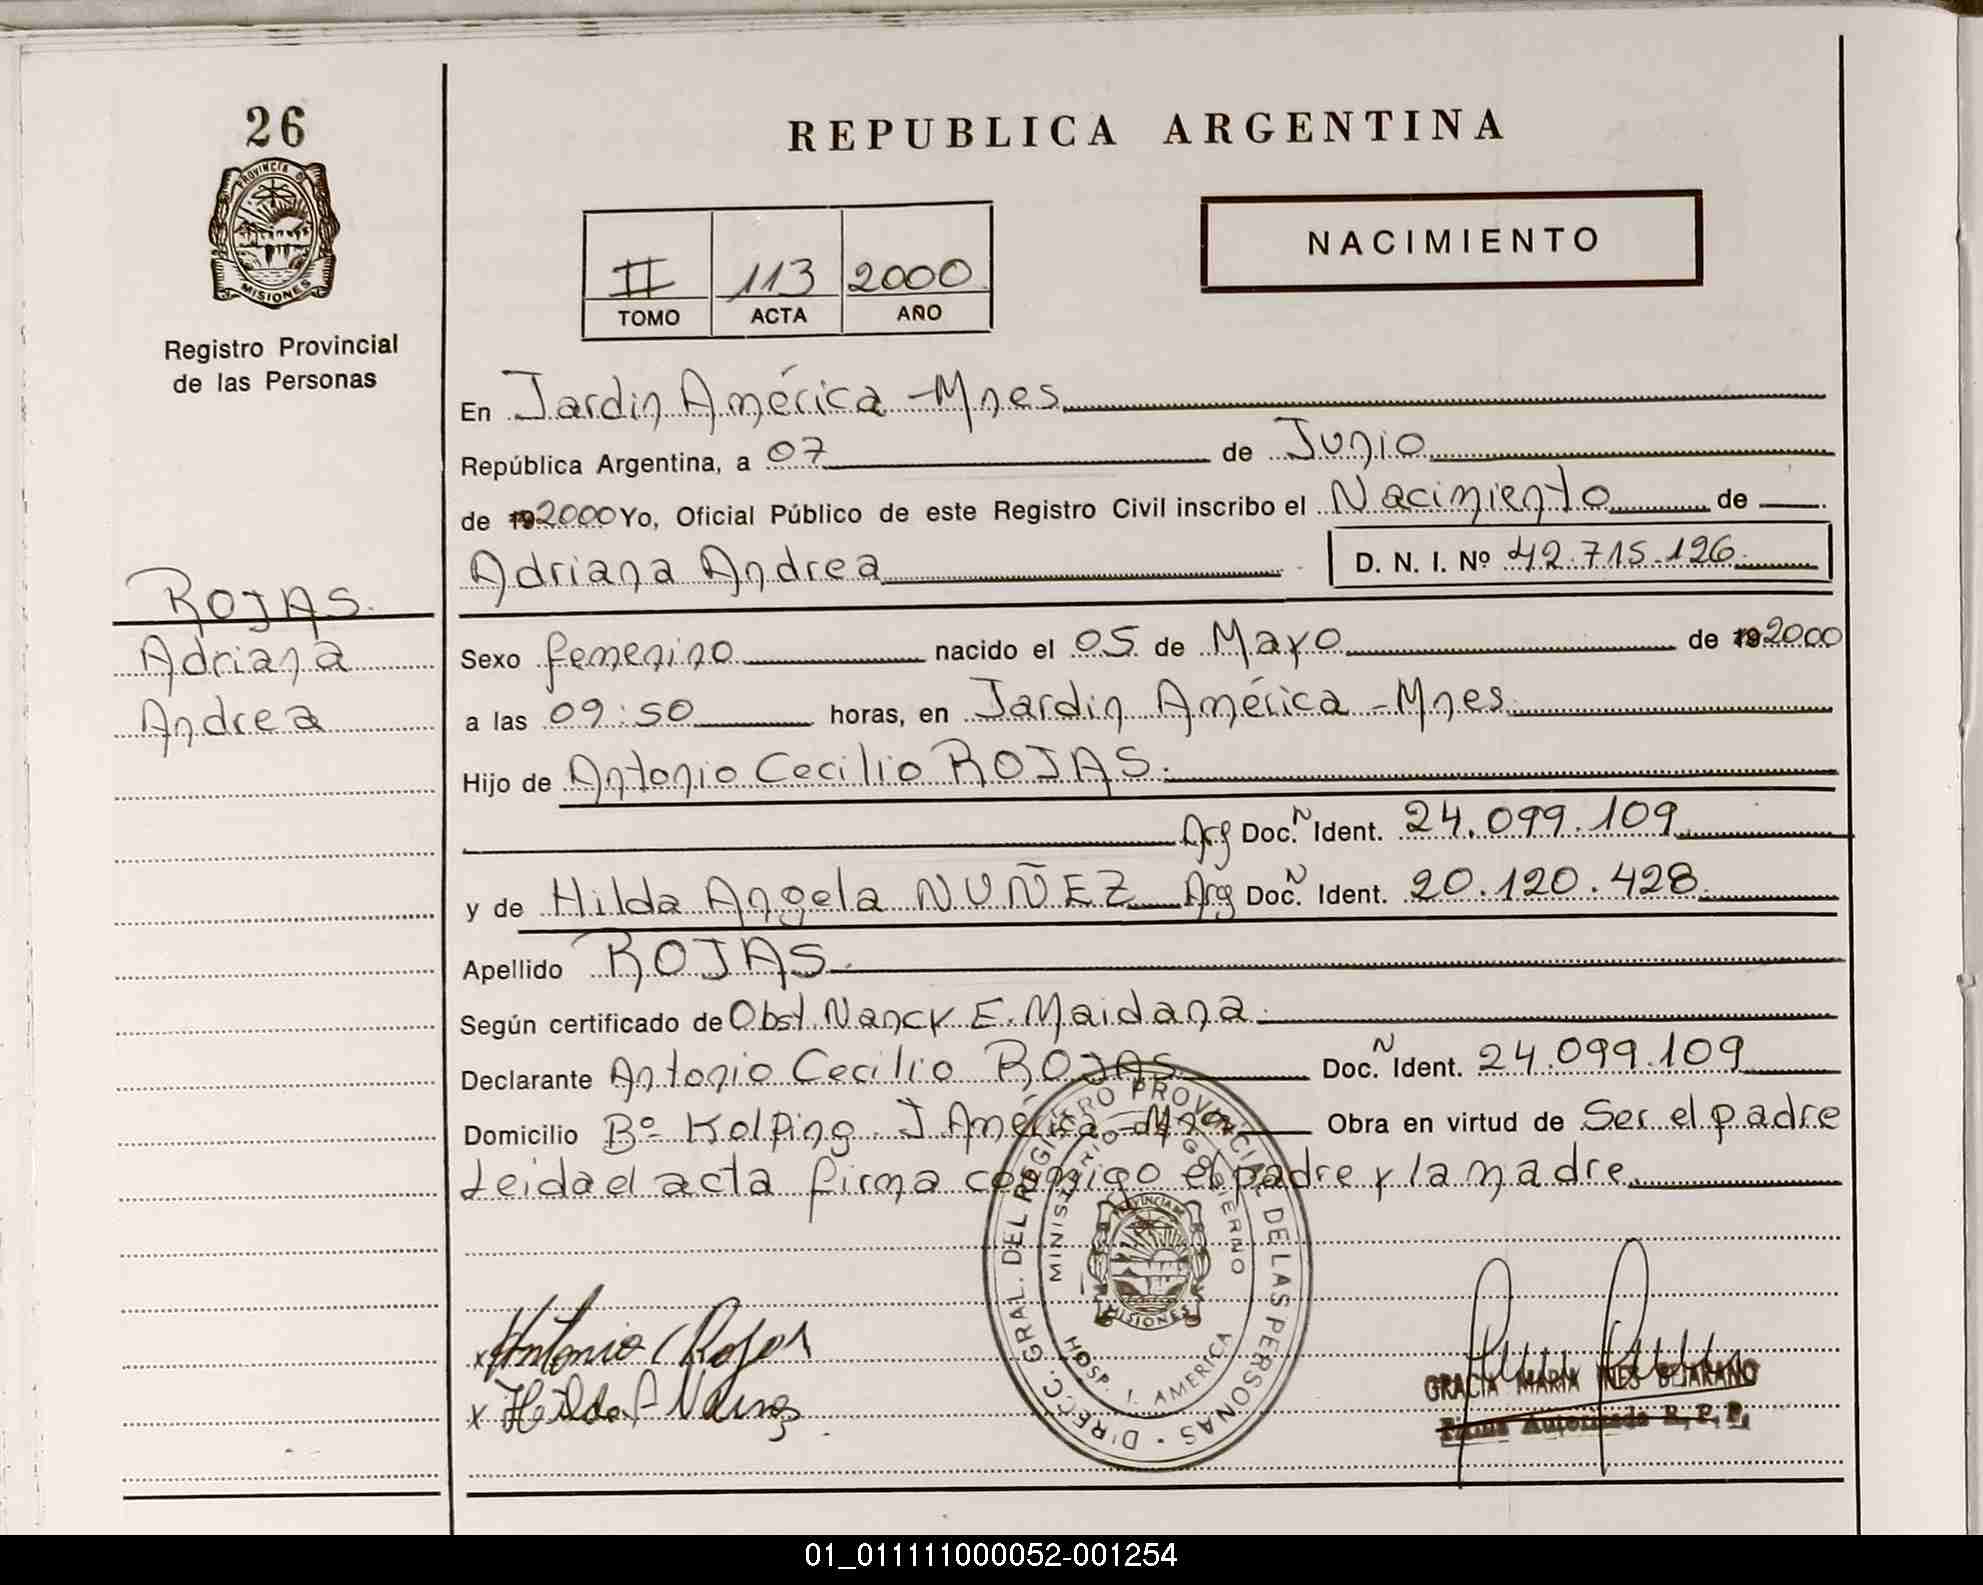 26
PROVINCIA DE
MISIONES
Registro Provincial
de las Personas
ROJAS.
Adriana
Andrea
REPUBLICA ARGENTINA
II 113 2000
TOMO ACTA AÑO
NACIMIENTO
En Jardin América - Mnes
República Argentina, a 07 de Junio
de 192000 Yo, Oficial Público de este Registro Civil inscribo el Nacimiento de
Adriana Andrea D. N. I. Nº 42.715.126
Sexo femenino nacido el 05 de Mayo de 192000
a las 09:50 horas, en Jardin América - Mnes.
Hijo de Antonio Cecilio ROJAS.
Arg Doc. N Ident. 24.099.109
y de Hilda Angela NUÑEZ Arg Doc. N Ident. 20.120.428
Apellido ROJAS.
Según certificado de Obst. Nancy E. Maidana
Declarante Antonio Cecilio ROJAS Doc. N Ident. 24.099.109
Domicilio Bº Kolping. J América - Mnes Obra en virtud de Ser el padre
Leida el acta firma conmigo el padre y la madre.
DIRECC. GRAL. DEL REGISTRO PROVINCIAL DE LAS PERSONAS
MINISTERIO DE GOBIERNO
PROVINCIA DE
MISIONES
HOSP. J. AMERICA
x Antonio C Rojas
x Hilda A Nuñez
GRACIA MARIA INES BEJARANO
Firma Autorizada R. P. P.
01_011111000052-001254